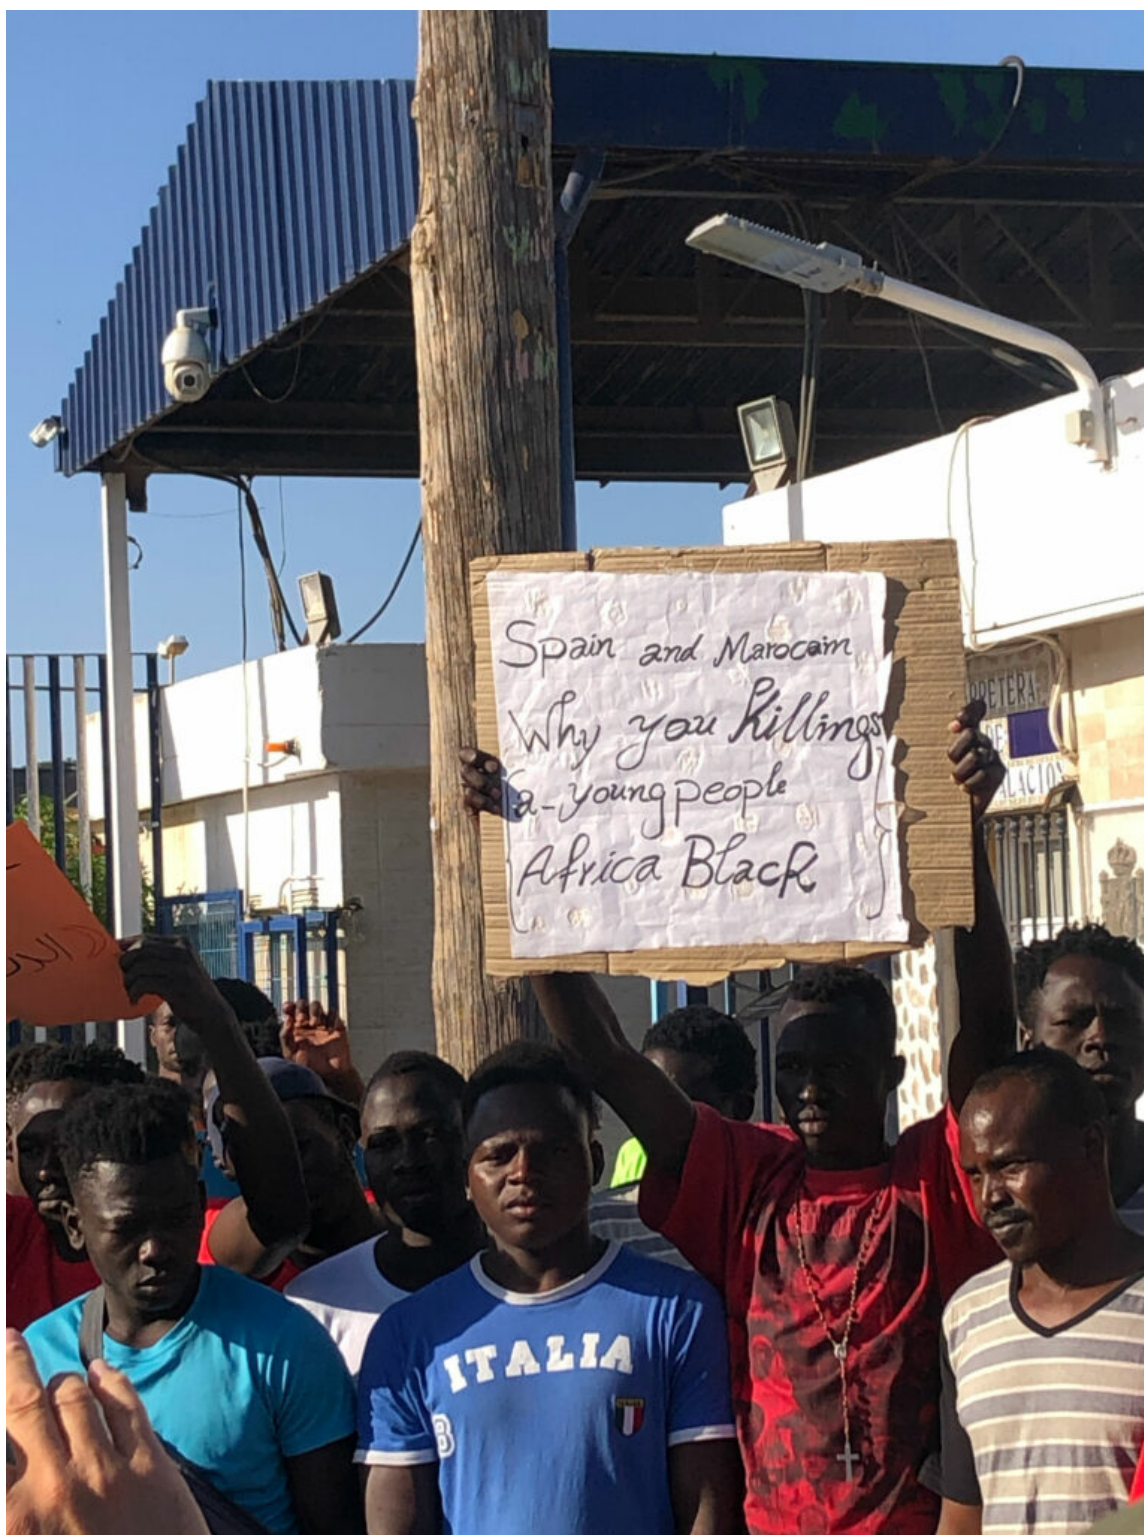 Spain and Marocain
Why you Killings
a-young people
Africa Black
RRETERA
DE
ITALIA
8